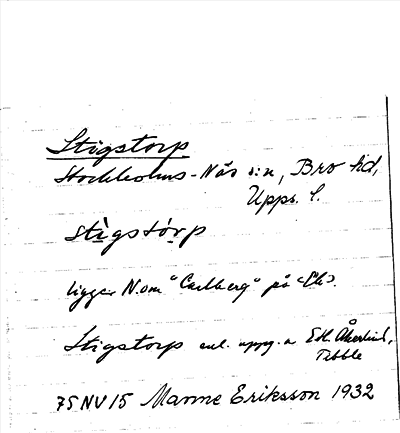 Stigstorp
Stockholms-Näs s:n, Bro hd,
Upps. l.
stìgstórp
ligger N. om "Carlberg" på
Stigstorp enl. uppg. a Edl. Åkerlind,
Tibble
75 NV 15 Manne Eriksson 1932